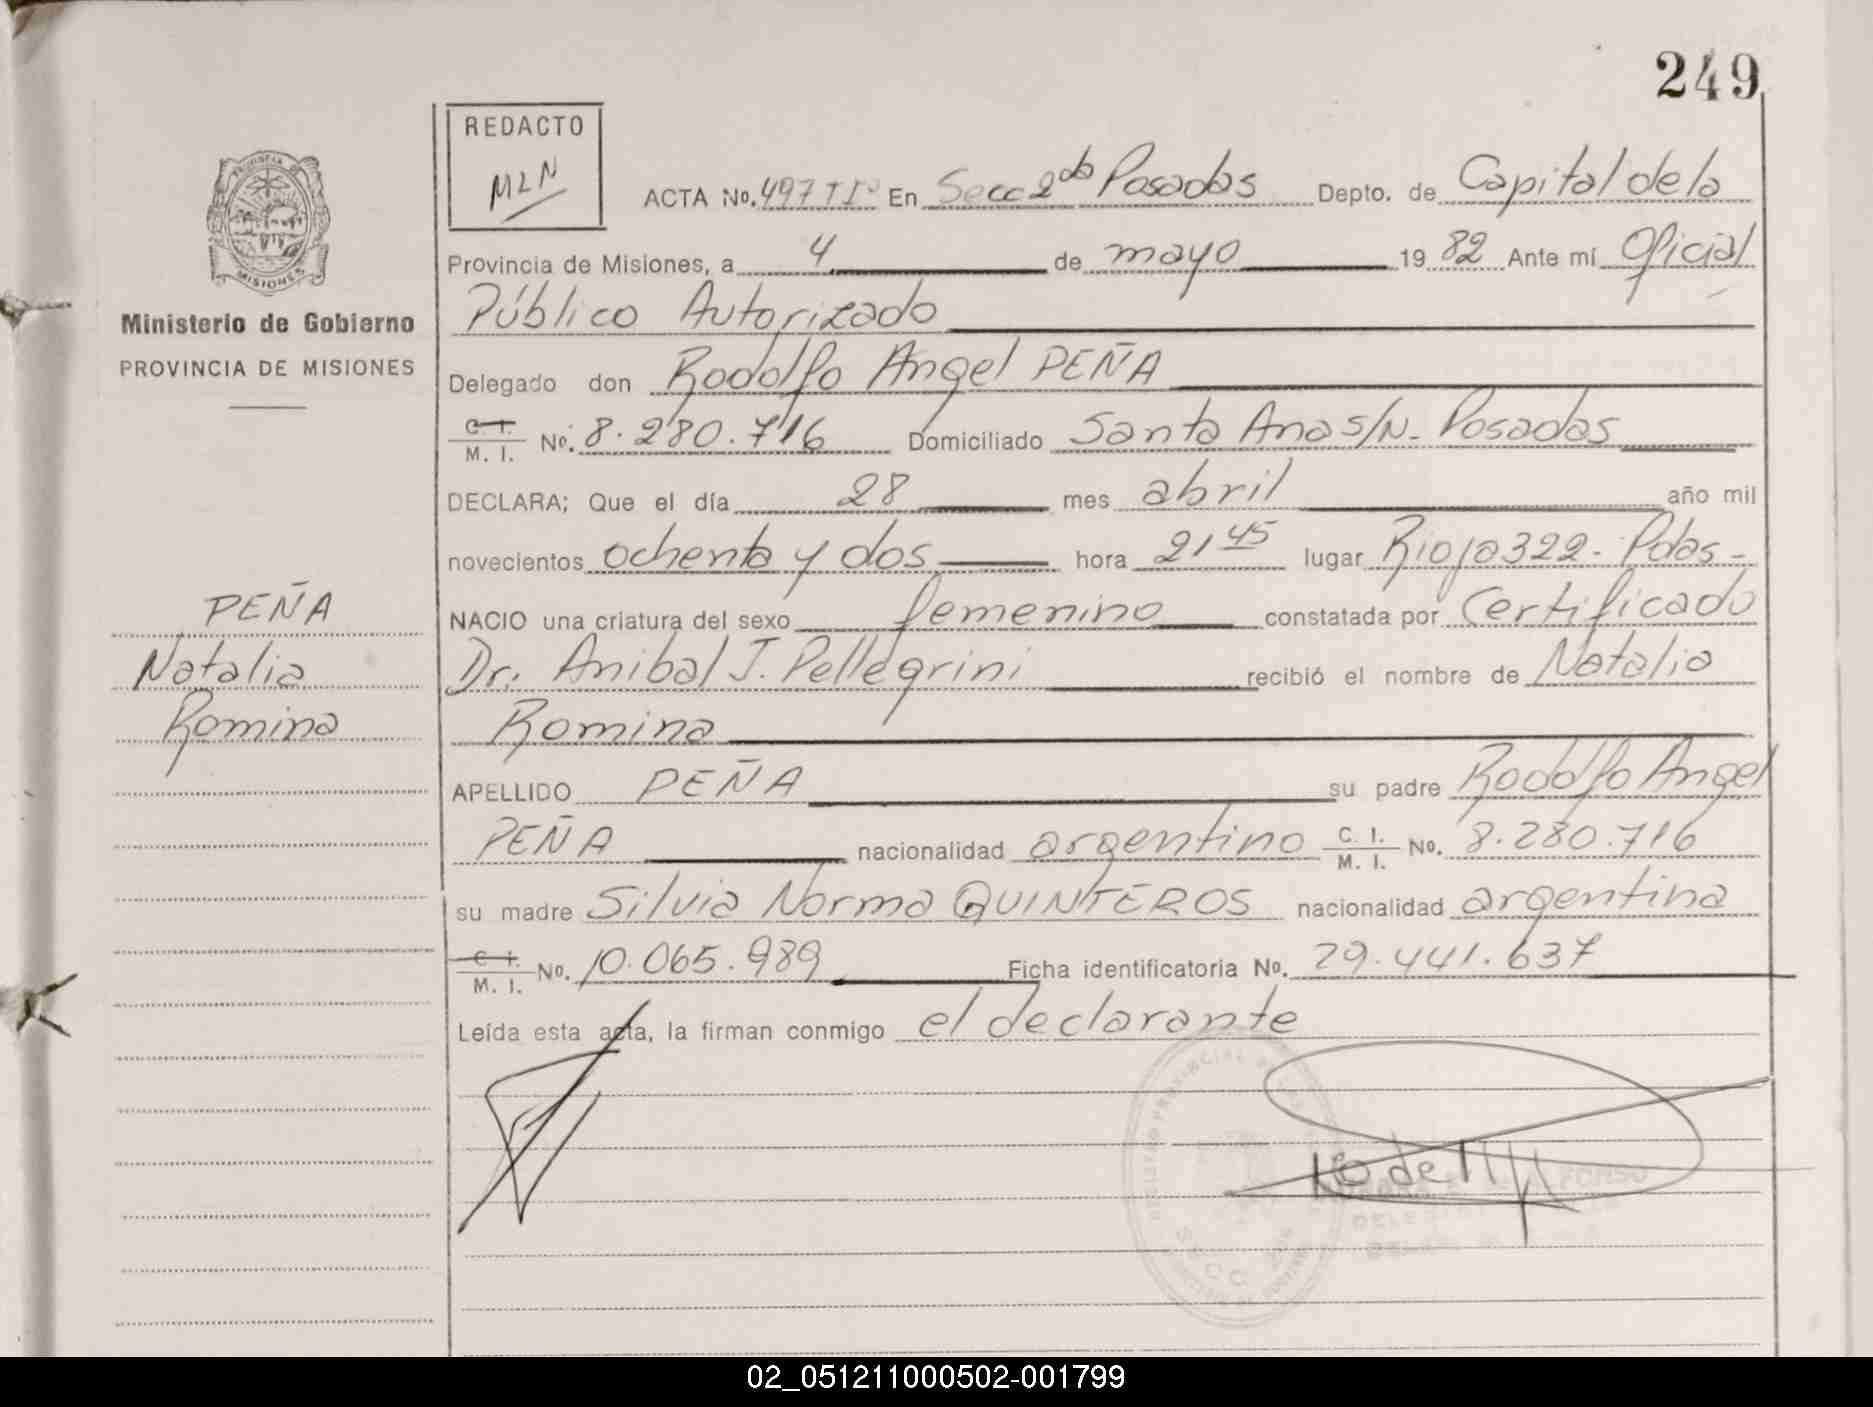 249
REDACTO
MLN
ACTA No. 497 TIº En Secc 2da Posadas Depto. de Capital de la
Provincia de Misiones, a 4 de mayo 19 82 Ante mí Oficial
Público Autorizado
Delegado don Rodolfo Angel PEÑA
C. I. M. I. No. 8.280.716 Domiciliado Santa Ana S/N. Posadas
DECLARA; Que el día 28 mes abril año mil
novecientos ochenta y dos hora 21 45 lugar Rioja 322. Pdas-
NACIO una criatura del sexo femenino constatada por Certificado
Dr. Anibal J. Pellegrini recibió el nombre de Natalia
Romina
APELLIDO PEÑA su padre Rodolfo Angel
PEÑA nacionalidad argentino C. I. M. I. No. 8.280.716
su madre Silvia Norma QUINTEROS nacionalidad argentina
C. I. M. I. No. 10.065.989 Ficha identificatoria No. 29.441.637
Leída esta acta, la firman conmigo el declarante
PROVINCIA DE
MISIONES
Ministerio de Gobierno
PROVINCIA DE MISIONES
PEÑA
Natalia
Romina
SECC
02_051211000502-001799